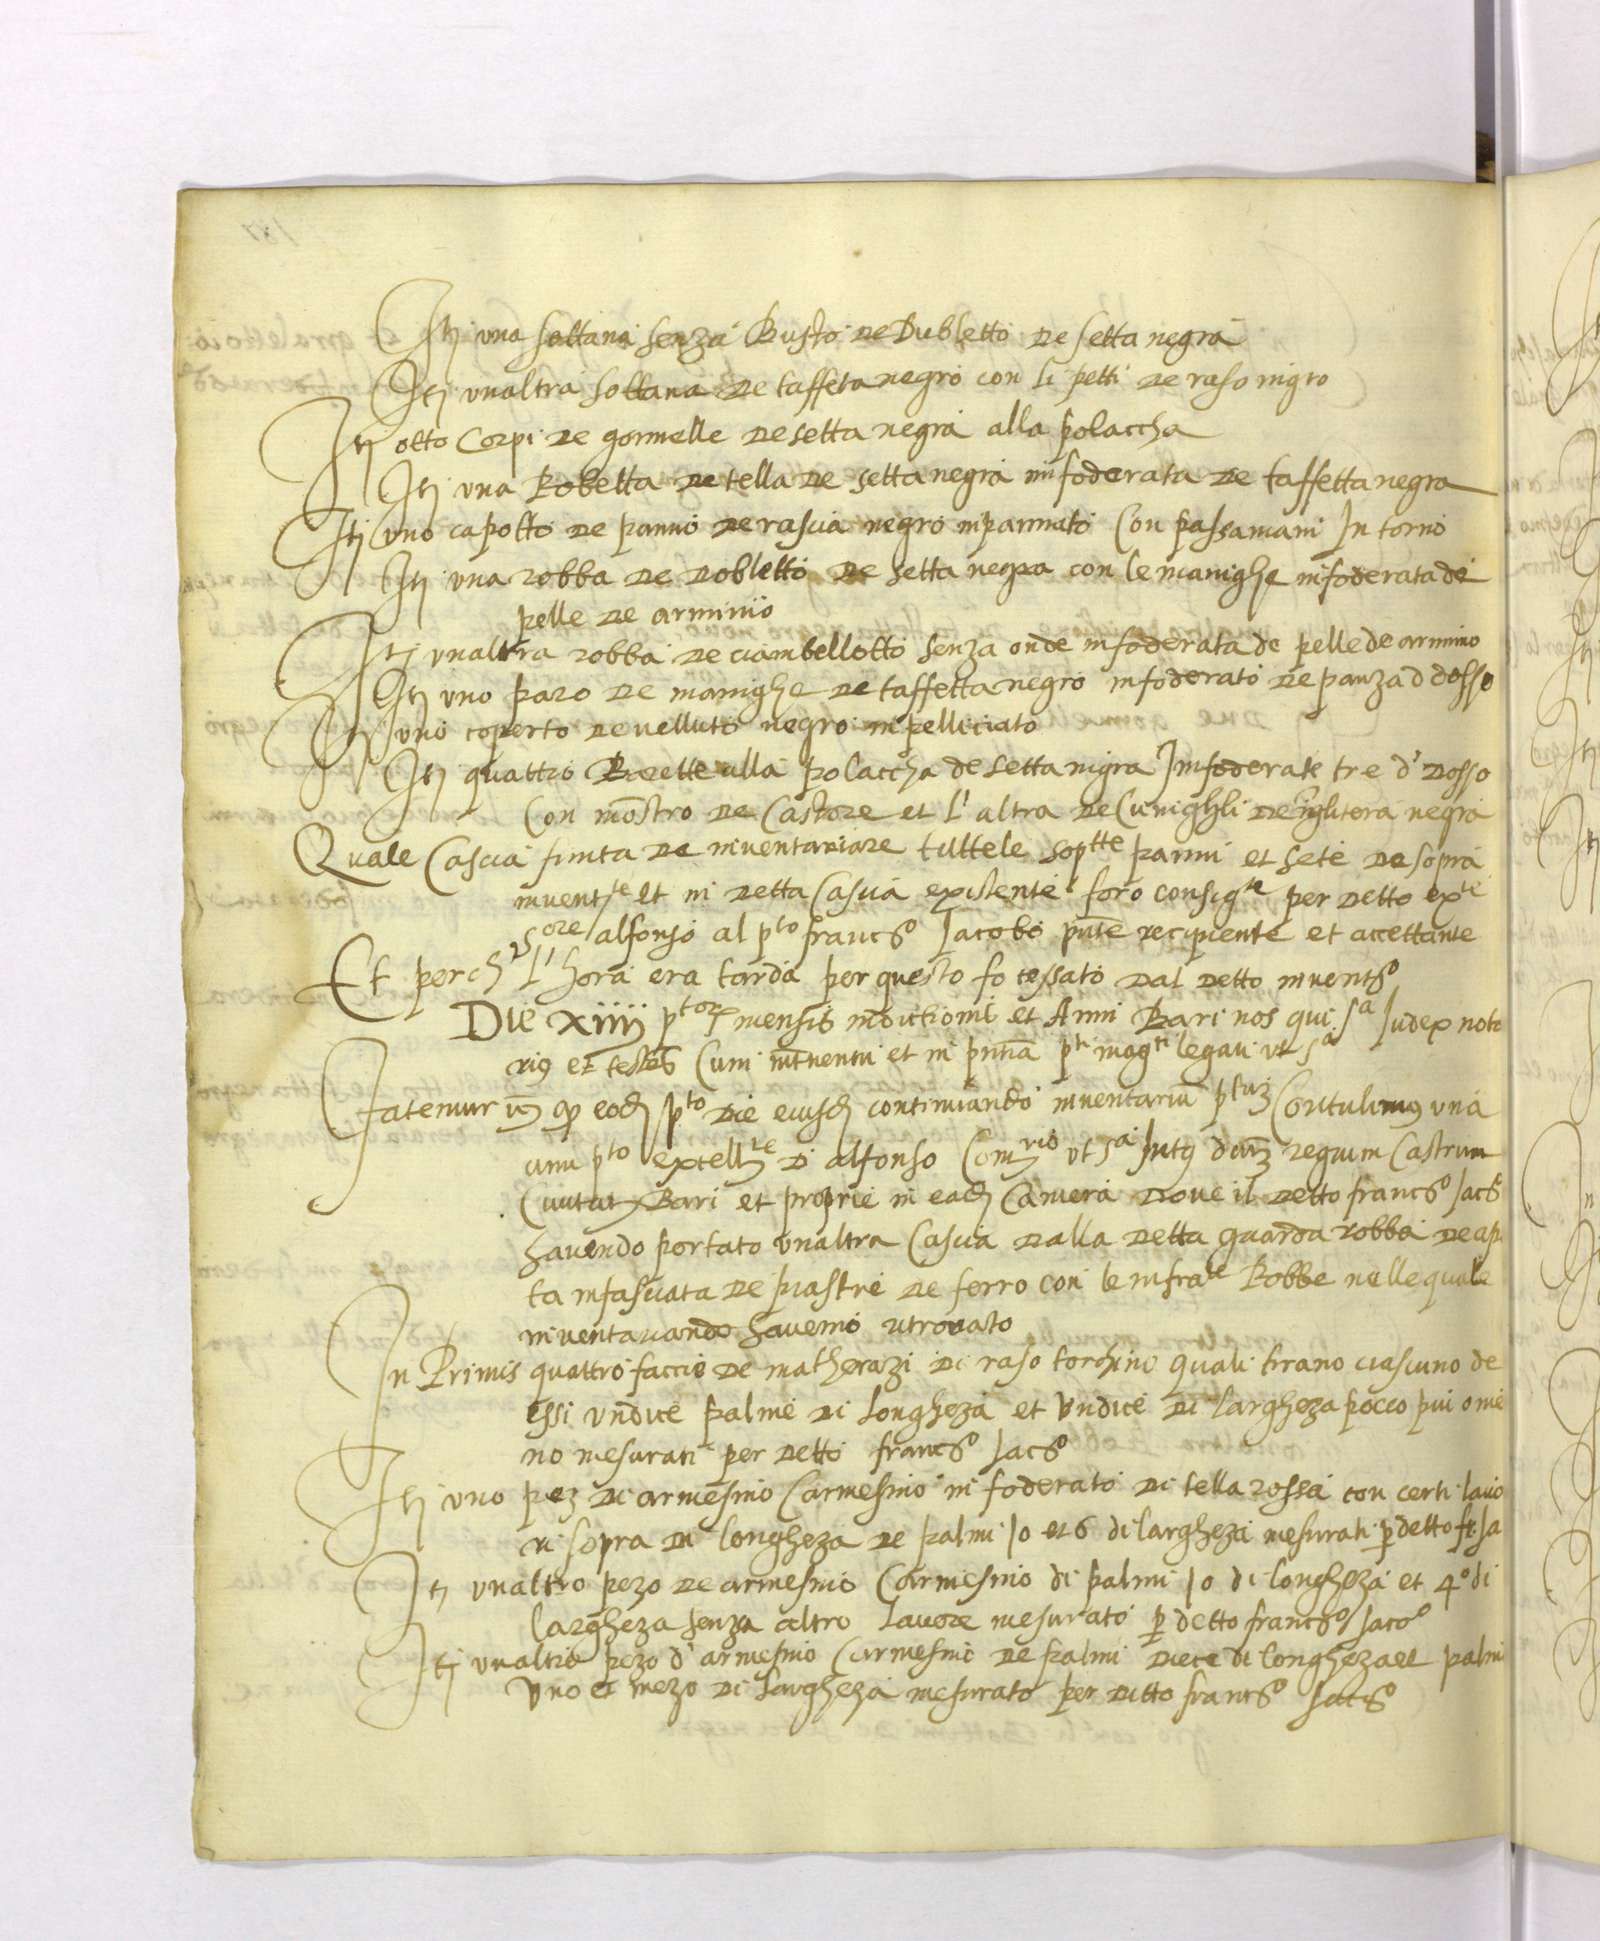 Itj una sottana senza Busto de Dubletto de setta negra
Itj unaltra sottana de taffeta negro con li petti de raso nigro
Itj otto Corpi de gonnelle de setta negra alla polaccha
Itj una Robetta de tella de setta negra infoderata de taffetta negra
Itj uno capotto de panno de rascia negro inpannato Con passamani In torno
Itj una robba de dobletto de setta negra con le manighe infoderata de
pelle de arminio
Itj unaltra robba de ciambellotto senza onde infoderata de pelle de armino
Itj uno paro de manighe de taffetta negro infoderato de panza d dosso
Itj uno coperto de velluto negro inpelliciato
Itj quattro alla polaccha de setta nigra Imfoderate tre d' dosso
Con mostro de Castore et l' altra de Cunighli de Inglitera negra
Quale Cascia finita de inventariare tutte le sop.tte panni et sete de sopra
invent.te et in detta Cascia existente foro consig.te per detto ex.te
S.ore alfonso al p.to franc.o Jacobo pnte recipiente et accettante
Et perch l' hora era tarda per questo fo cessato dal detto invent.o
Die xiiij p.tor mensis indictionis et Anni Bari nos qui s.a Judex nota
rius et testes Cum et in pntia p.ti mag.ci legati ut s.a
Fatemur q eod p.to die eiusd continuando inventariu p.tum Contulimus una
cum p.to excell.te D. alfonso Com.rio ut s.a Intus regium Castrum
Civitatis Bari et proprie in ead Camera dove il detto franc.o Jac.o
havendo portato unaltra Cascia dalla detta guarda robba de ap
ta infasciata de piastre de ferro con le infra.tte Robbe nelle quale
inventariando havemo ritrovato
In Primis quattro faccie de matherazi di raso torchino quali tirano ciascuno de
essi undice palme di longheza et undice di largheza pocco piu o me
no mesurati per detto franc.o Jac.o
Itj uno pez di armesino Carmesino infoderato di tella rossa con certi lavo
ri sopra di longheza de palmi 10 et 6 di largheza mesurati p detto fr. Ja
Itj unaltro pezo de armesino Carmesino di palmi 10 di longheza et 4o di
largheza senza altro lavore mesurato p detto franc.o Jaco.o
Itj unaltro pezo d' armesino Carmesino de palmi diece di longheza et palmi
uno et mezo di largheza mesurato per ditto franc.o Jac.o